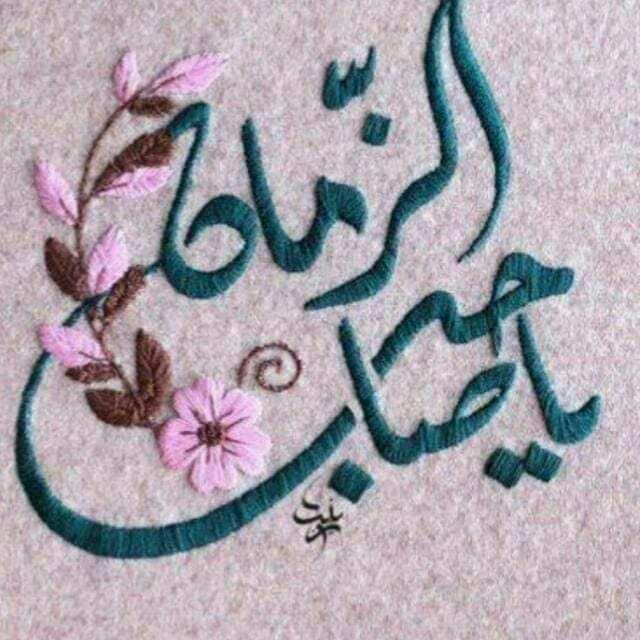 یا صاحب
الزّمان